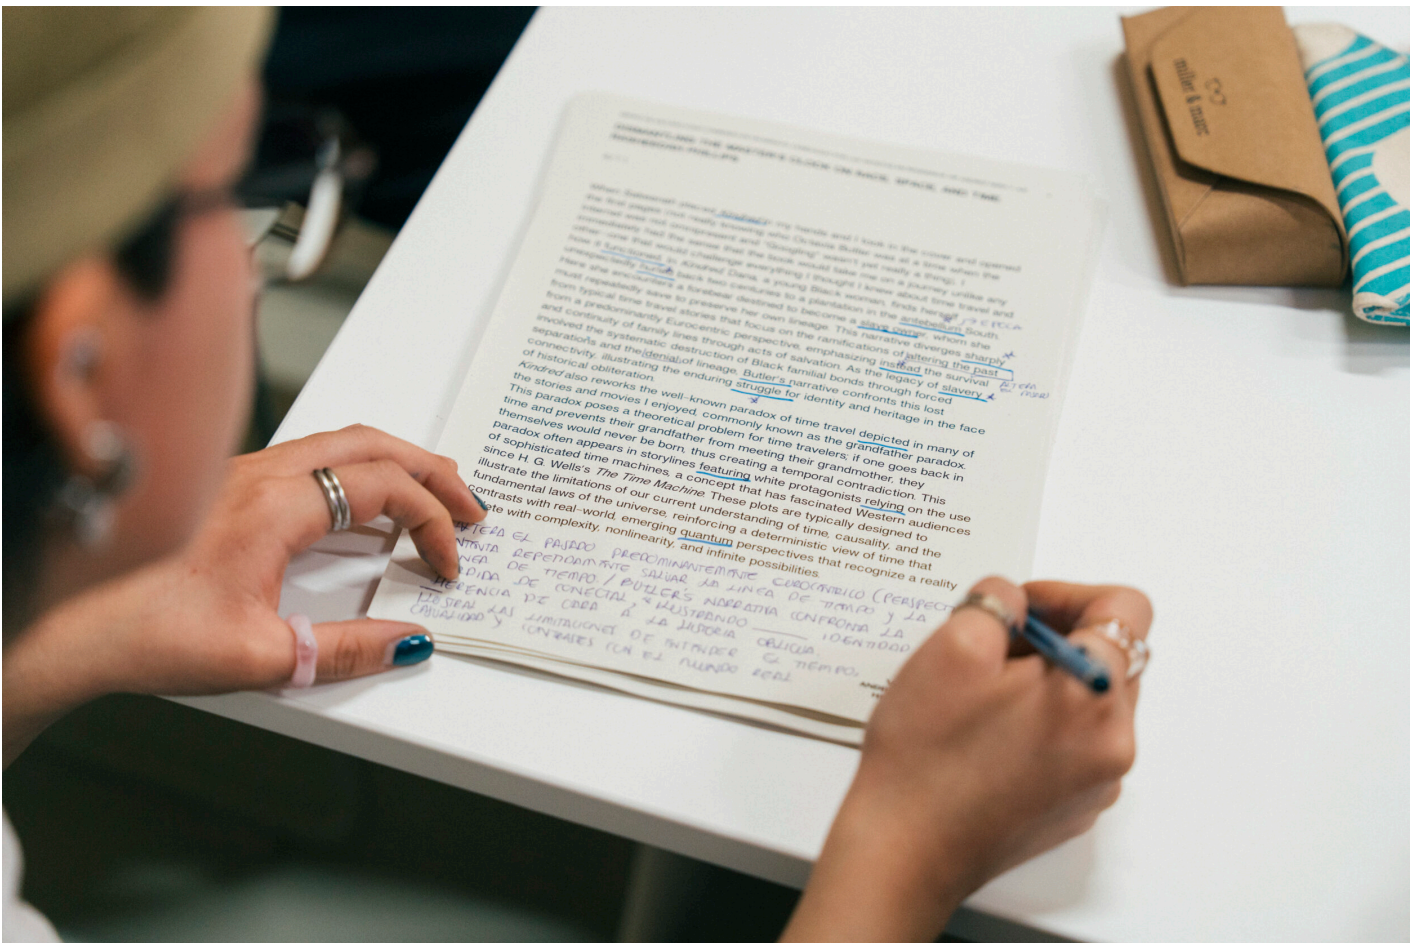 DISMANTLING THE MASTER'S CLOCK: ON RACE, SPACE, AND TIME
RASHEEDAH PHILLIPS
When I placed Kindred in my hands and I took in the cover and opened
the first pages (not really knowing who Octavia Butler was at a time when the
internet was not omnipresent and "Googling" wasn't yet really a thing), I
immediately had the sense that the book would take me on a journey unlike any
other—one that would challenge everything I thought I knew about time travel and
how it functioned. In Kindred, Dana, a young Black woman, finds herself
unexpectedly back two centuries to a plantation in the antebellum South.
Here she encounters a forebear destined to become a slave owner, whom she
must repeatedly save to preserve her own lineage. This narrative diverges sharply
from typical time travel stories that focus on the ramifications of altering the past
from a predominantly Eurocentric perspective, emphasizing instead the survival
and continuity of family lines through acts of salvation. As the legacy of slavery
involved the systematic destruction of Black familial bonds through forced
separations and the denial of lineage, Butler's narrative confronts this lost
connectivity, illustrating the enduring struggle for identity and heritage in the face
of historical obliteration.
Kindred also reworks the well-known paradox of time travel depicted in many of
the stories and movies I enjoyed, commonly known as the grandfather paradox.
This paradox poses a theoretical problem for time travelers; if one goes back in
time and prevents their grandfather from meeting their grandmother, they
themselves would never be born, thus creating a temporal contradiction. This
paradox often appears in storylines featuring white protagonists relying on the use
of sophisticated time machines, a concept that has fascinated Western audiences
since H. G. Wells's The Time Machine. These plots are typically designed to
illustrate the limitations of our current understanding of time, causality, and the
fundamental laws of the universe, reinforcing a deterministic view of time that
contrasts with real-world, emerging quantum perspectives that recognize a reality
ete with complexity, nonlinearity, and infinite possibilities.
ALTERA EL PASADO PREDOMINANTEMENTE EUROCENTRICO (PERSPECT
INTENTA REPENDAMENTE SALVAR LA LINEA DE TIEMPO Y LA
LINEA DE TIEMPO / BUTLER'S NARRATIVA CONFRONTA LA
DE CONECTAR, ILUSTRANDO IDENTIDAD
HERENCIA DE CARA A LA HISTORIA OBLICUA.
LAS LIMITACIONES DE ENTENDER EL TIEMPO,
CASUALIDAD Y CONTRASTES CON EL MUNDO REAL
miller & marc